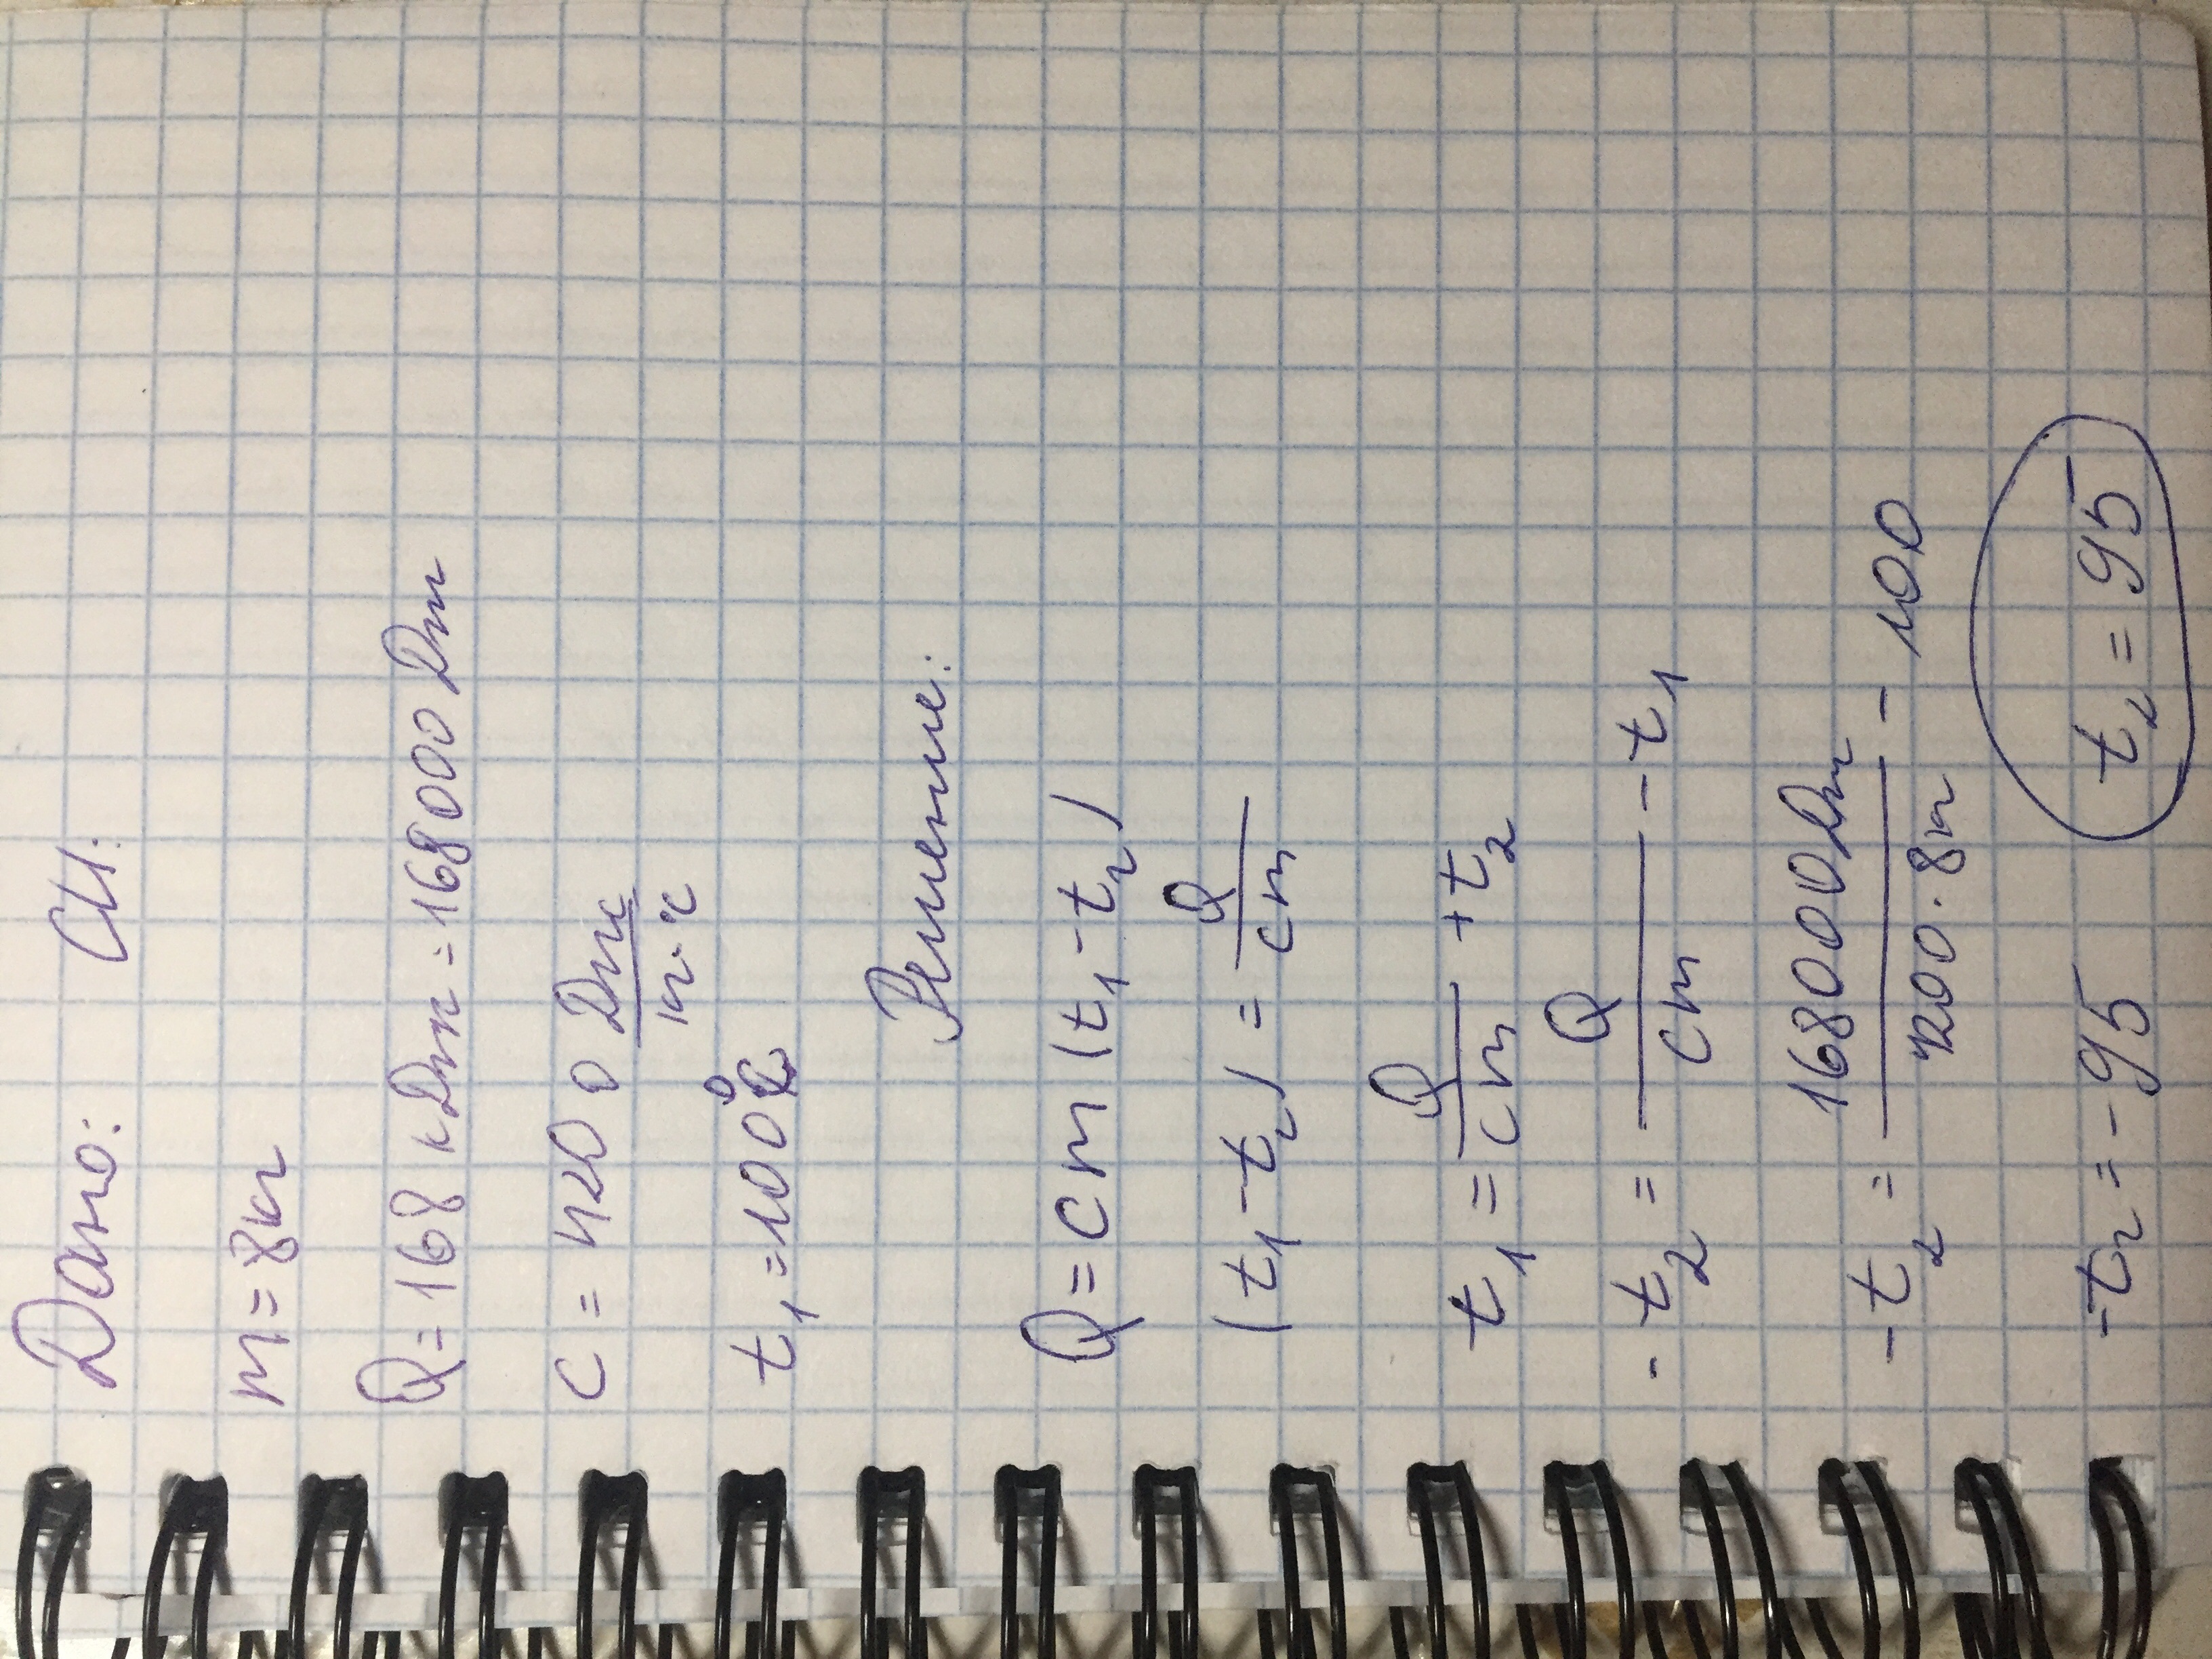 Дано: СИ:
m = 8кг
Q = 168 кДж = 168000 Дж
c = 4200 Дж/кг·°C
t₁ = 100°C
Решение:
Q = cm (t₁ - t₂)
(t₁ - t₂) = Q/cm
t₁ = Q/cm + t₂
- t₂ = Q/cm - t₁
- t₂ = 168000Дж/4200·8кг - 100
- t₂ = - 95 t₂ = 95